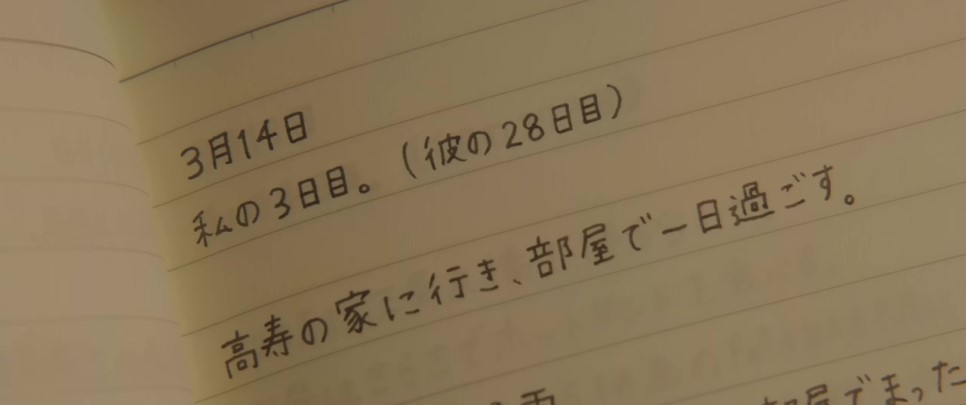 3月14日
私の3日目。(彼の28日目)
高寿の家に行き、部屋で一日過ごす。
部屋でまった